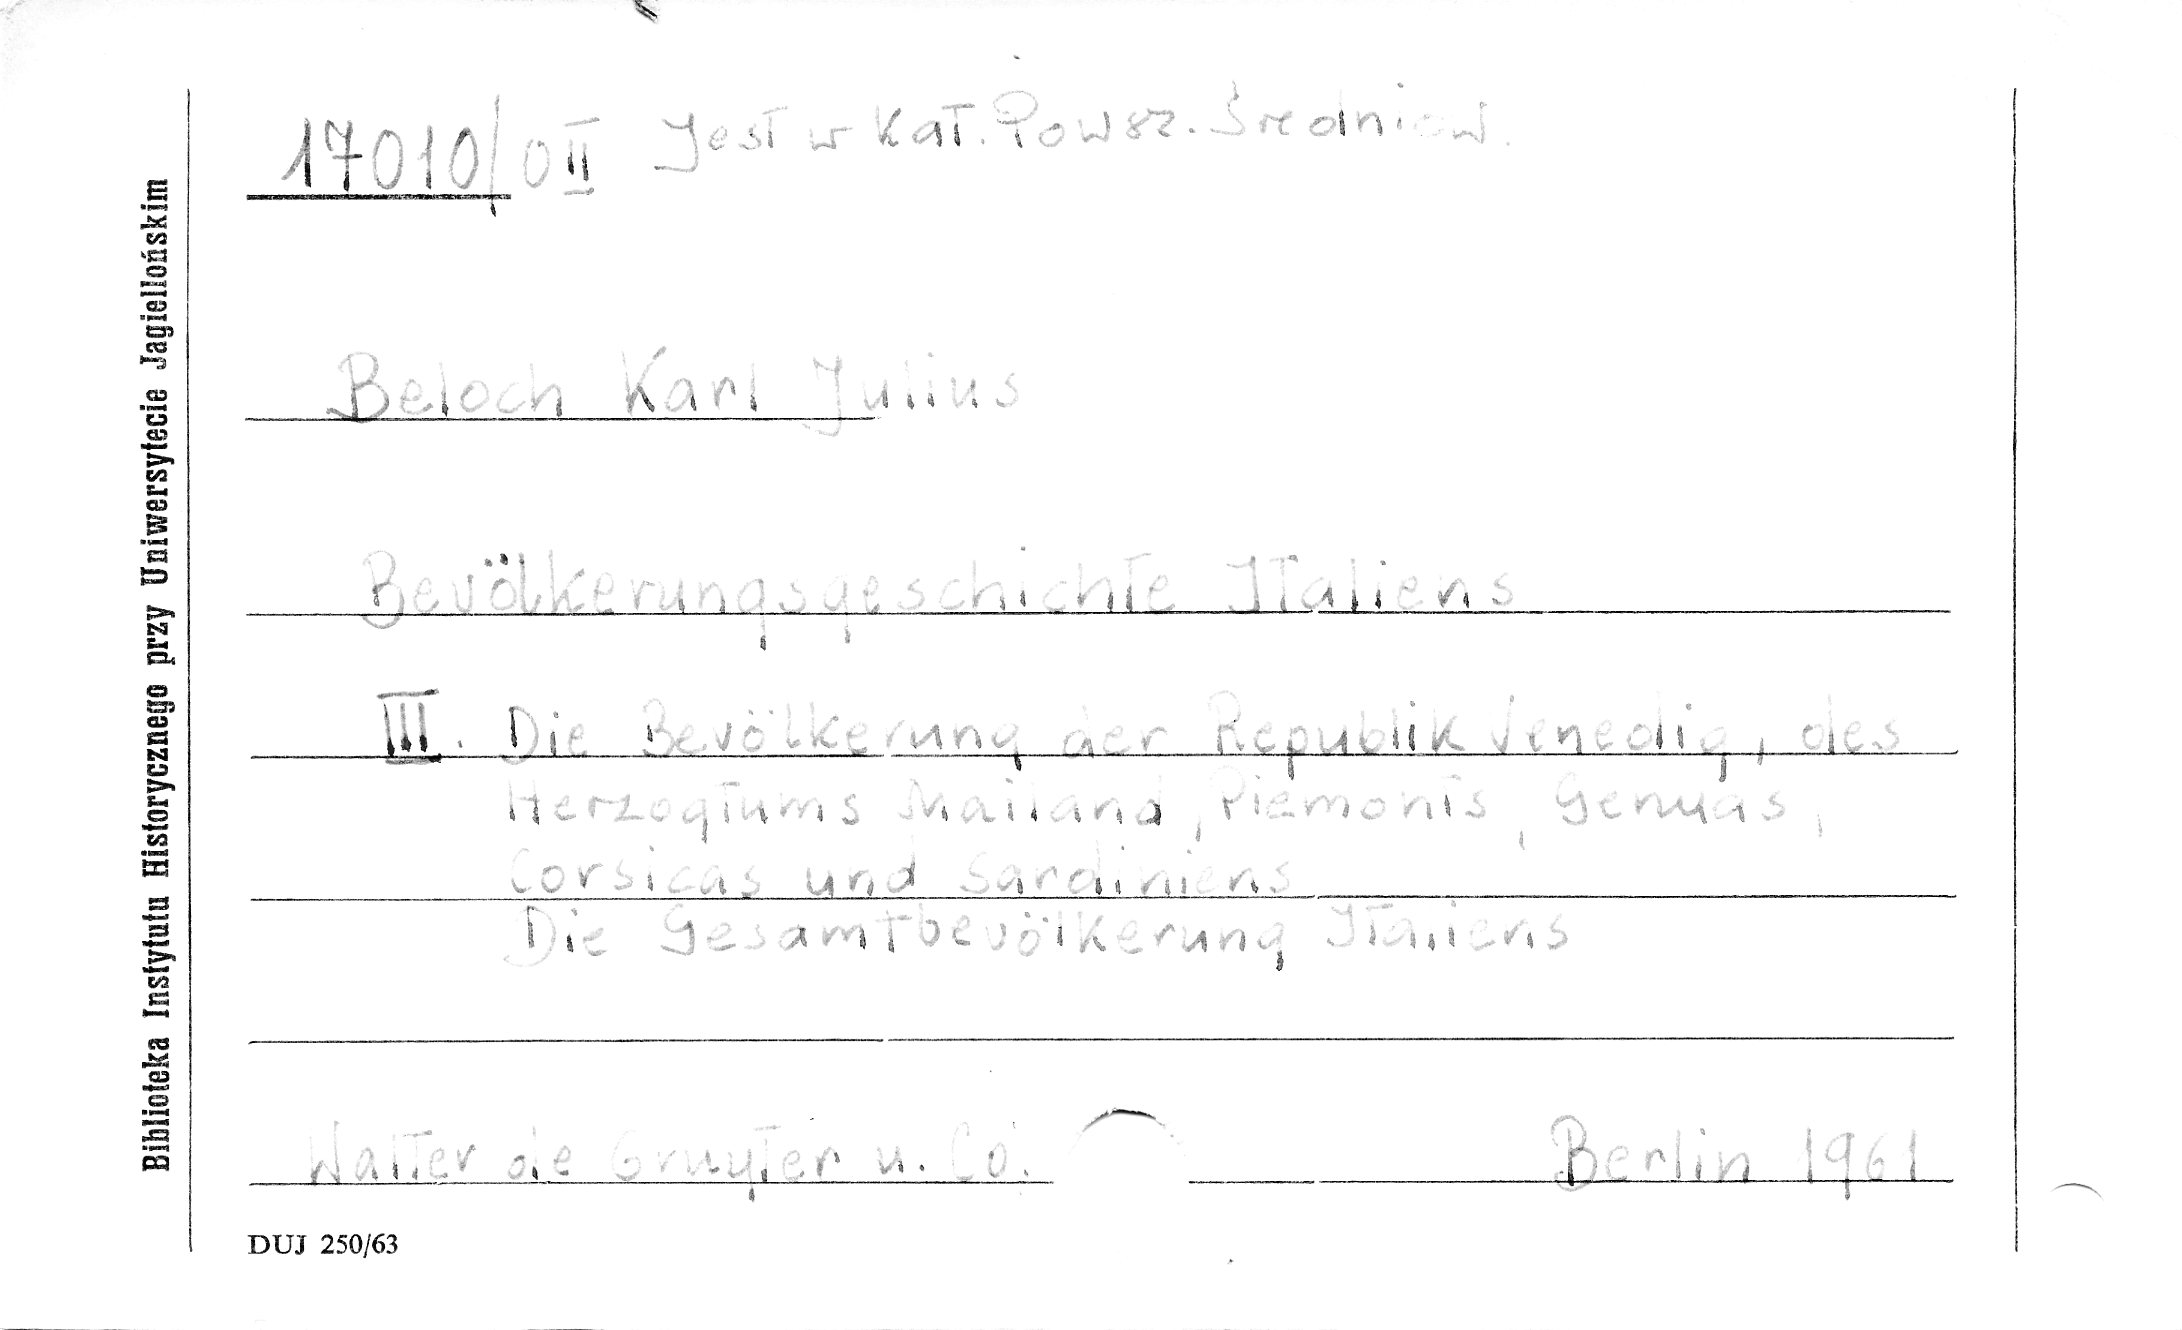 17010/0 II Jest w Kat. Powsz. Średniow.
Beloch Karl Julius
Bevölkerungsgeschichte Italiens
III. Die Bevölkerung der Republik Venedig, des
Herzogtums Mailand, Piemonts, Genuas,
Corsicas und Sardiniens
Die Gesamtbevölkerung Italiens
Walter de Gruyter u. Co. Berlin 1961
DUJ 250/63
Biblioteka Instytutu Historycznego przy Uniwersytecie Jagiellońskim